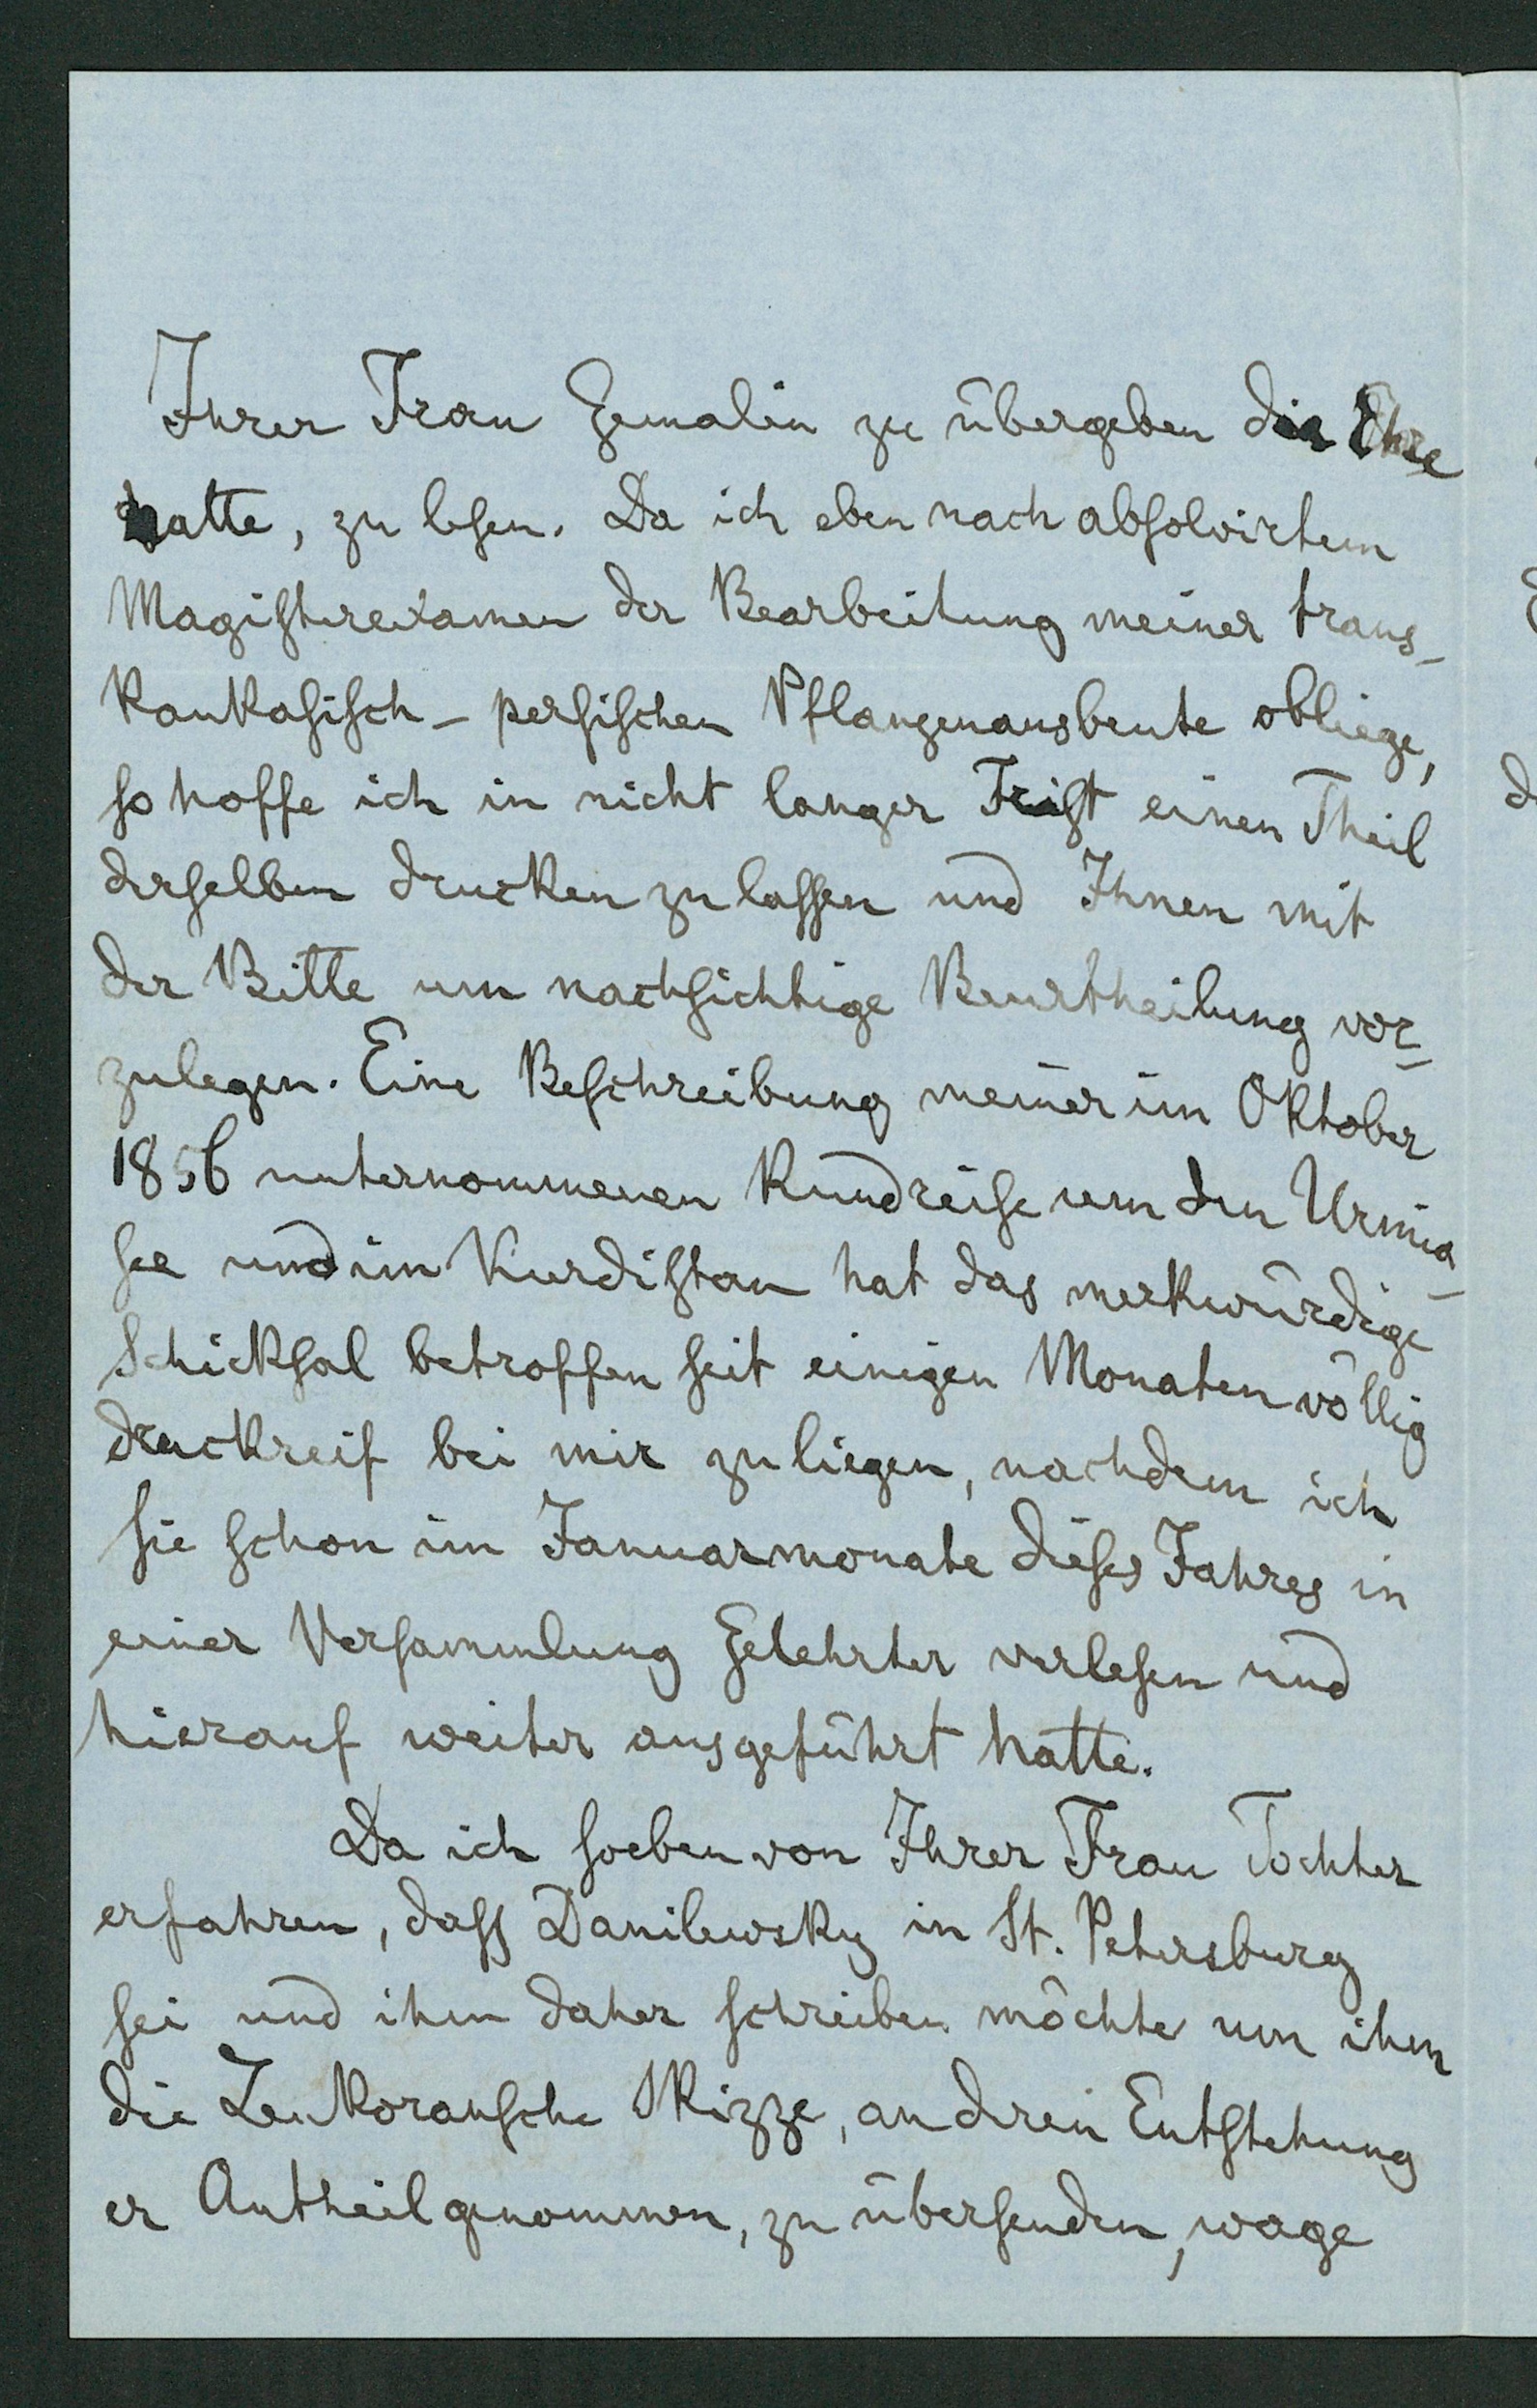 Ihrer Frau Gemalin zu übergeben die Ehre
hatte, zu lesen. Da ich eben nach absolvirtem
Magisterexamen der Bearbeitung meiner trans-
kaukasisch-persischen Pflanzenausbeute obliege,
so hoffe ich in nicht langer Frist einen Theil
derselben drucken zu lassen und Ihnen mit
der Bitte um nachsichtige Beurtheilung vor-
zulegen. Eine Beschreibung meiner im Oktober
1856 unternommenen Rundreise um den Urmia-
see und im Kurdistan hat das merkwürdige
Schicksal betroffen seit einigen Monaten völlig
druckreif bei mir zu liegen, nachdem ich
sie schon im Januarmonate dieses Jahres in
einer Versammlung Gelehrter verlesen und
hierauf weiter ausgeführt hatte.
Da ich soeben von Ihrer Frau Tochter
erfahren, dass Danilewsky in St. Petersburg
sei und ihm daher schreiben möchte um ihm
die Lenkoransche Skizze, an deren Entstehung
er Antheil genommen, zu übersenden, wage